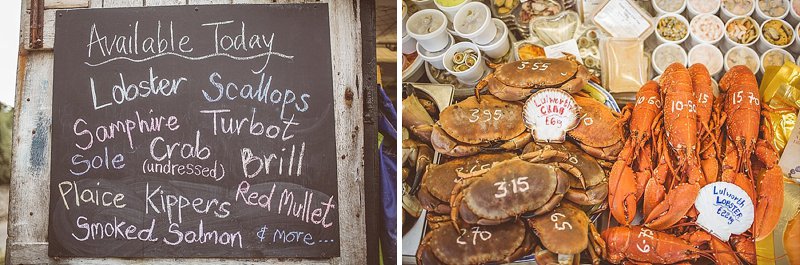 Available Today
Lobster Scallops
Samphire Turbot
Sole Crab Brill
(undressed)
Plaice Kippers Red Mullet
Smoked Salmon & more...
3.55
3.95
Lulworth
CRAB
3.15
2.70
10-50
15.70
Lulworth
LOBSTER